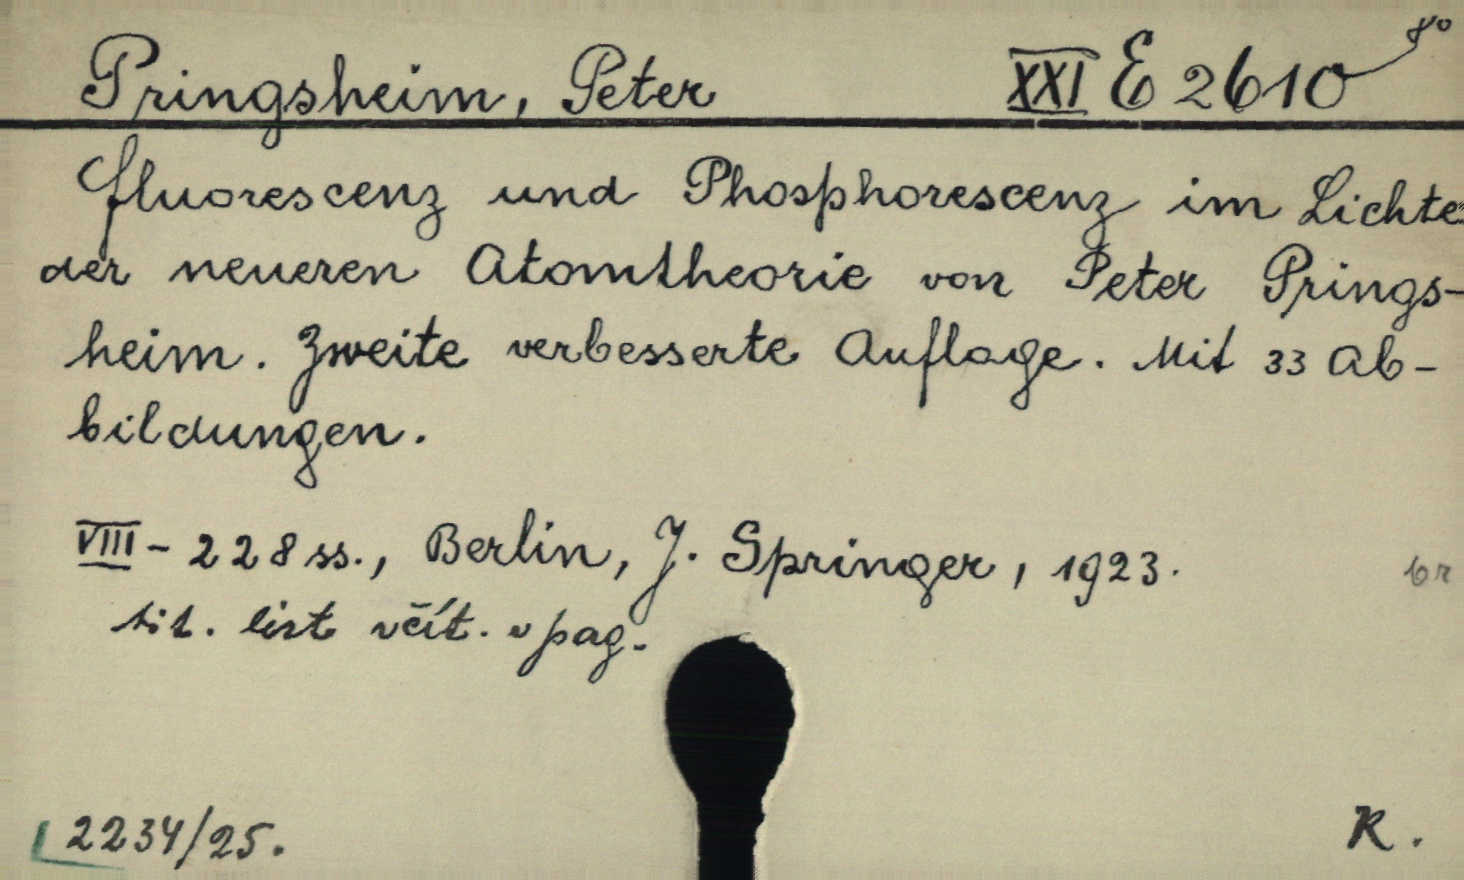 Pringsheim, Peter XXI E 2610 8°
Fluorescenz und Phosphorescenz im Lichte
der neueren Atomtheorie von Peter Prings-
heim. Zweite verbesserte Auflage. Mit 33 Ab-
bildungen.
VIII - 228 ss., Berlin, J. Springer, 1923.
br
tit. list včít. v pag.
2234/25.
K.